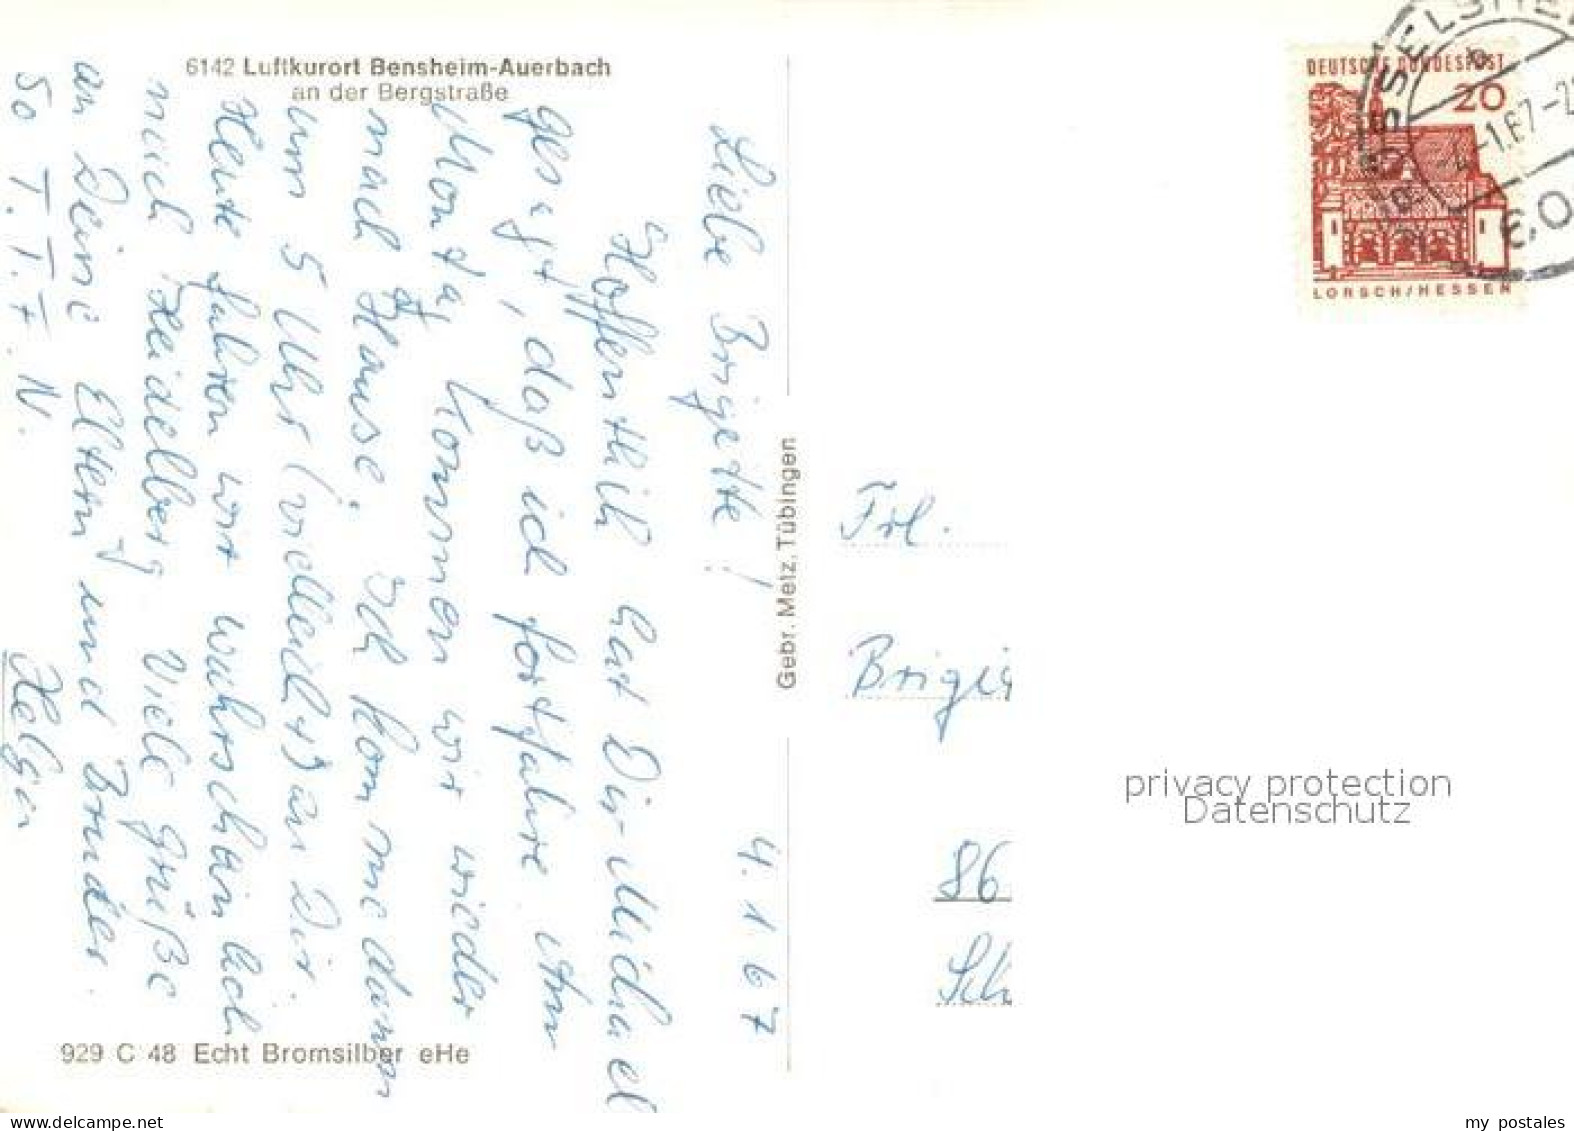 6142 Luftkurort Bensheim-Auerbach
an der Bergstraße
4. 1. 67
Liebe Brigitte!
Hoffentlich hat Dir Michael
gesagt, daß ich fortfahre. Am
Montag kommen wir wieder
nach Hause. Ich komme dann
um 5 Uhr (vielleicht) zu Dir.
Heute fahren wir wahrscheinlich
nach Heidelberg. Viele Grüße
an Deine Eltern und Bruder.
So T.T.F.N.
Helga
929 C 48 Echt Bromsilber eHe
Gebr. Metz, Tübingen
DEUTSCHE BUNDESPOST
20
LORSCH/HESSEN
Frl.
86
privacy protection
Datenschutz
my postales